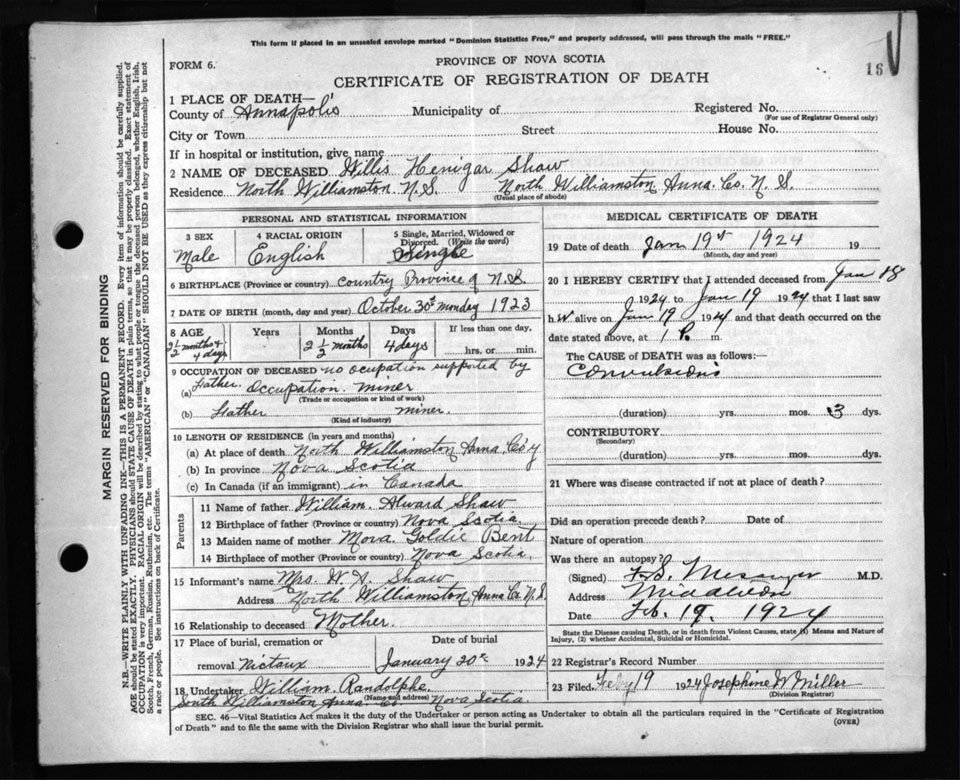 This form if placed in an unsealed envelope marked "Dominion Statistics Free," and properly addressed, will pass through the mails "FREE."
16
FORM 6.
PROVINCE OF NOVA SCOTIA
CERTIFICATE OF REGISTRATION OF DEATH
1 PLACE OF DEATH—
County of Annapolis Municipality of Registered No.
(For use of Registrar General only)
City or Town Street House No.
If in hospital or institution, give name
2 NAME OF DECEASED Willis Henigar Shaw
Residence North Williamston N.S. North Williamston Anna. Co. N.S.
(Usual place of abode)
PERSONAL AND STATISTICAL INFORMATION
3 SEX
Male
4 RACIAL ORIGIN
English
5 Single, Married, Widowed or Divorced. (Write the word)
Single
6 BIRTHPLACE (Province or country) Country Province of N.S.
7 DATE OF BIRTH (month, day and year) October 30st monday 1923
8 AGE Years Months Days If less than one day,
2 1/2 months & 4 days 2 1/2 months 4 days hrs. or min.
9 OCCUPATION OF DECEASED no ocupation supported by
(a) Father. Occupation. miner
(Trade or occupation or kind of work)
(b) Father miner.
(Kind of industry)
10 LENGTH OF RESIDENCE (in years and months)
(a) At place of death North Williamston Anna Co'y
(b) In province Nova Scotia
(c) In Canada (if an immigrant) in Canada
Parents
11 Name of father William. Alward Shaw
12 Birthplace of father (Province or country) Nova Scotia.
13 Maiden name of mother Mova Goldie Bent
14 Birthplace of mother (Province or country) Nova Scotia,
15 Informant's name Mrs. W. A. Shaw.
Address North Williamston. Anna Co. N.S.
16 Relationship to deceased Mother.
17 Place of burial, cremation or Date of burial
removal Nictaux January 20th 1924
18 Undertaker William. Randolphe.
(Name and address)
South Williamston Anna. Co. Nova Scotia.
MEDICAL CERTIFICATE OF DEATH
19 Date of death Jan 19th 1924 19
(Month, day and year)
20 I HEREBY CERTIFY that I attended deceased from Jan 18
1924 to Jan 19 1924 that I last saw
h alive on Jan 19 1924 and that death occurred on the
date stated above, at 1 P. m.
The CAUSE OF DEATH was as follows:—
Convulsions
(duration) yrs. mos. 3 dys.
CONTRIBUTORY
(Secondary)
(duration) yrs. mos. dys.
21 Where was disease contracted if not at place of death?
Did an operation precede death? Date of
Nature of operation
Was there an autopsy?
(Signed) Messenger M.D.
Address Middleton
Date Feb. 19. 1924
State the Disease causing Death, or in death from Violent Causes, state (1) Means and Nature of Injury, (2) whether Accidental, Suicidal or Homicidal.
22 Registrar's Record Number
23 Filed Feby 19 1924 Josephine W Miller
(Division Registrar)
SEC. 46—Vital Statistics Act makes it the duty of the Undertaker or person acting as Undertaker to obtain all the particulars required in the "Certificate of Registration
of Death" and to file the same with the Division Registrar who shall issue the burial permit. (OVER)
MARGIN RESERVED FOR BINDING
N.B.—WRITE PLAINLY WITH UNFADING INK—THIS IS A PERMANENT RECORD. Every item of information should be carefully supplied.
AGE should be stated EXACTLY. PHYSICIANS should STATE CAUSE OF DEATH in plain terms, so that it may be properly classified. Exact statement of
OCCUPATION is very important. RACIAL ORIGIN will be described by stating to what people or tongue the deceased person belonged, whether English, Irish,
Scotch, French, German, Russian, Ruthenian, etc. The terms "AMERICAN" or "CANADIAN" SHOULD NOT BE USED as they express citizenship but not
a race or people. See instructions on back of Certificate.